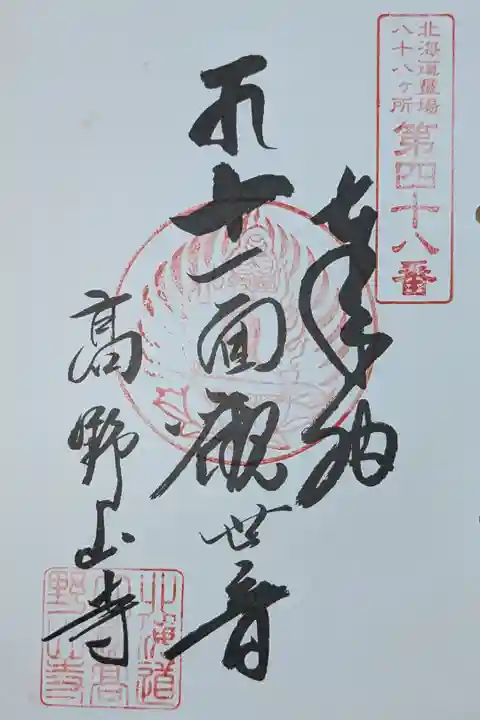 北海道霊場
八十八ヶ所
第四十八番
奉納
十一面観世音
高野山寺
北海道
高野山寺